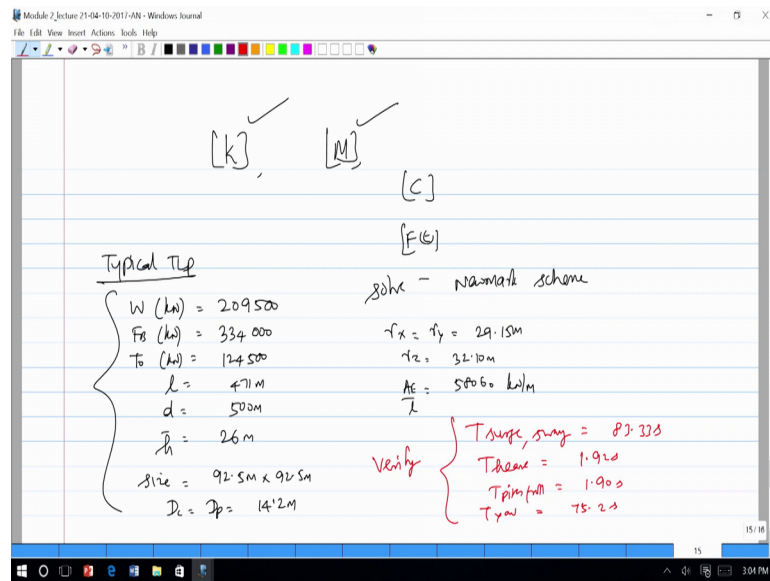 Module 2_lecture 21-04-10-2017-AN - Windows Journal
File Edit View Insert Actions Tools Help
[K], [M],
[C]
[F(t)]
Typical TLP
W (kN) = 209500
FB (kN) = 334 000
To (kN) = 124500
l = 471 M
d = 500M
h̄ = 26 M
size = 92.5M x 92.5M
Dc = Dp = 14.2M
solve - Newmark scheme
rx = ry = 29.15M
rz = 32.10M
AE/l = 58060 kN/m
Verify
T surge, sway = 83.33s
T heave = 1.92s
T pitch/roll = 1.90s
T yaw = 75.2s
15/16
15
3:04 PM